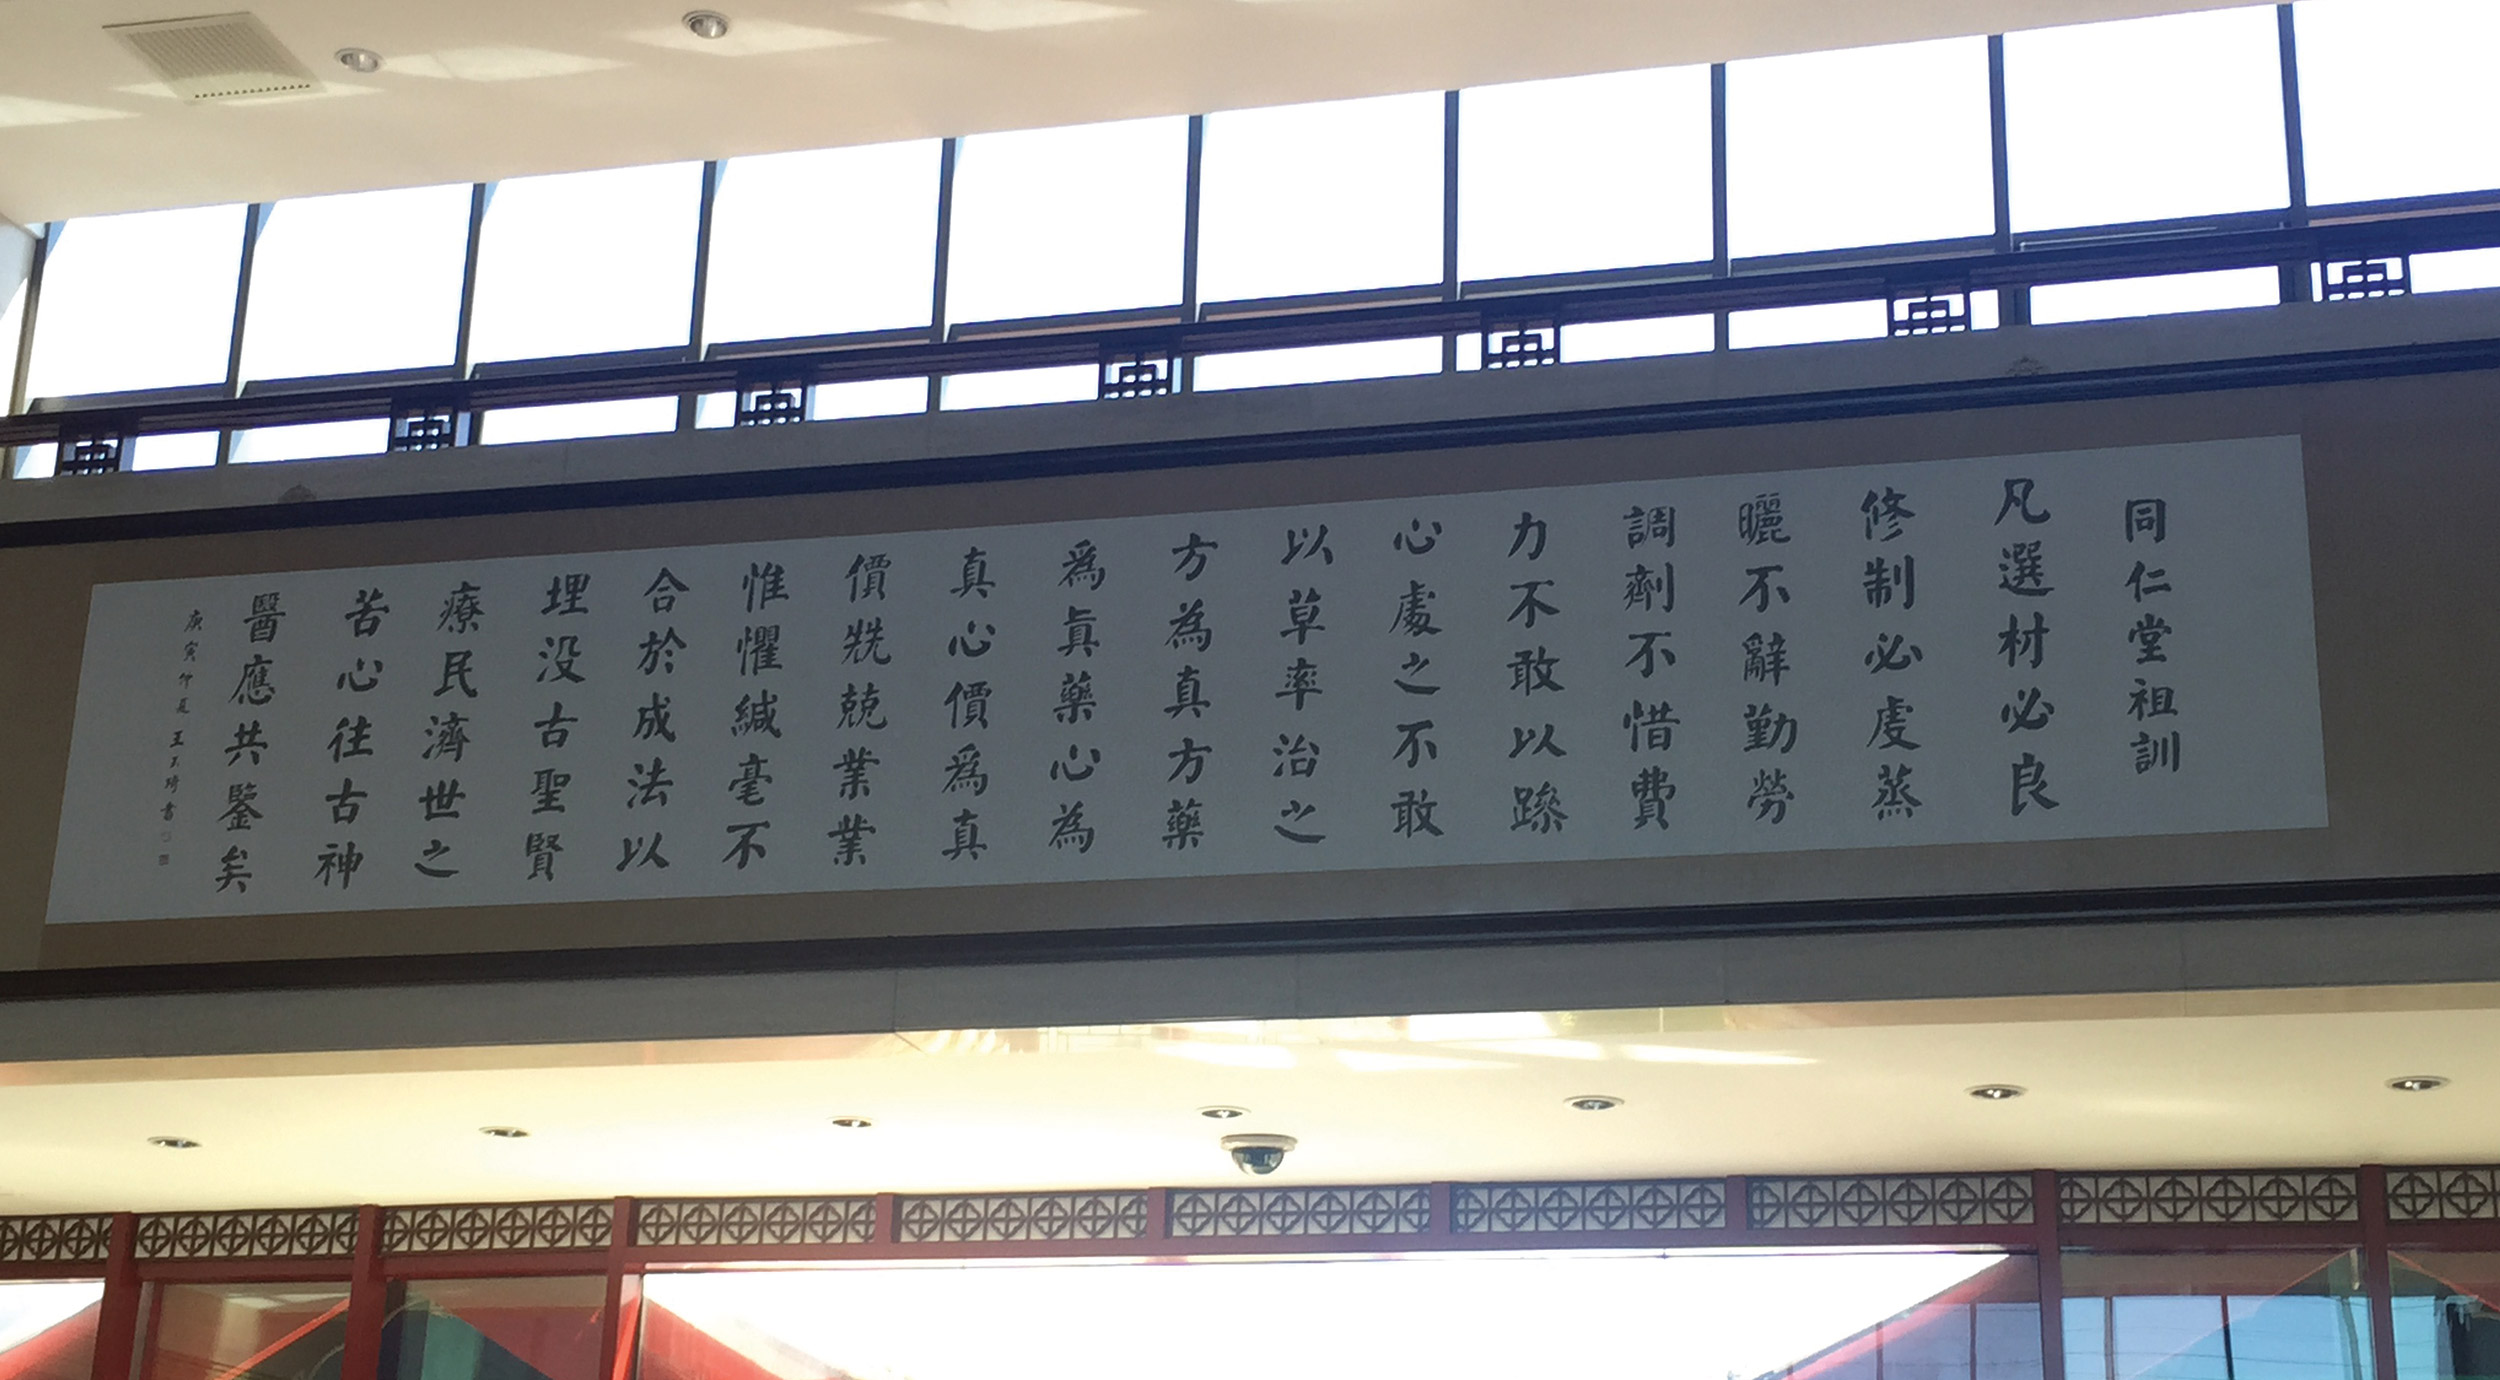 同仁堂祖訓
凡選材必良
修制必虔蒸
曬不辭勤勞
調劑不惜費
力不敢以躁
心處之不敢
以草率治之
方為真方藥
為眞藥心為
真心價為真
價兢兢業業
惟懼緘毫不
合於成法以
埋没古聖賢
療民濟世之
苦心往古神
醫應共鑒矣
庚寅仲夏王玉琦書